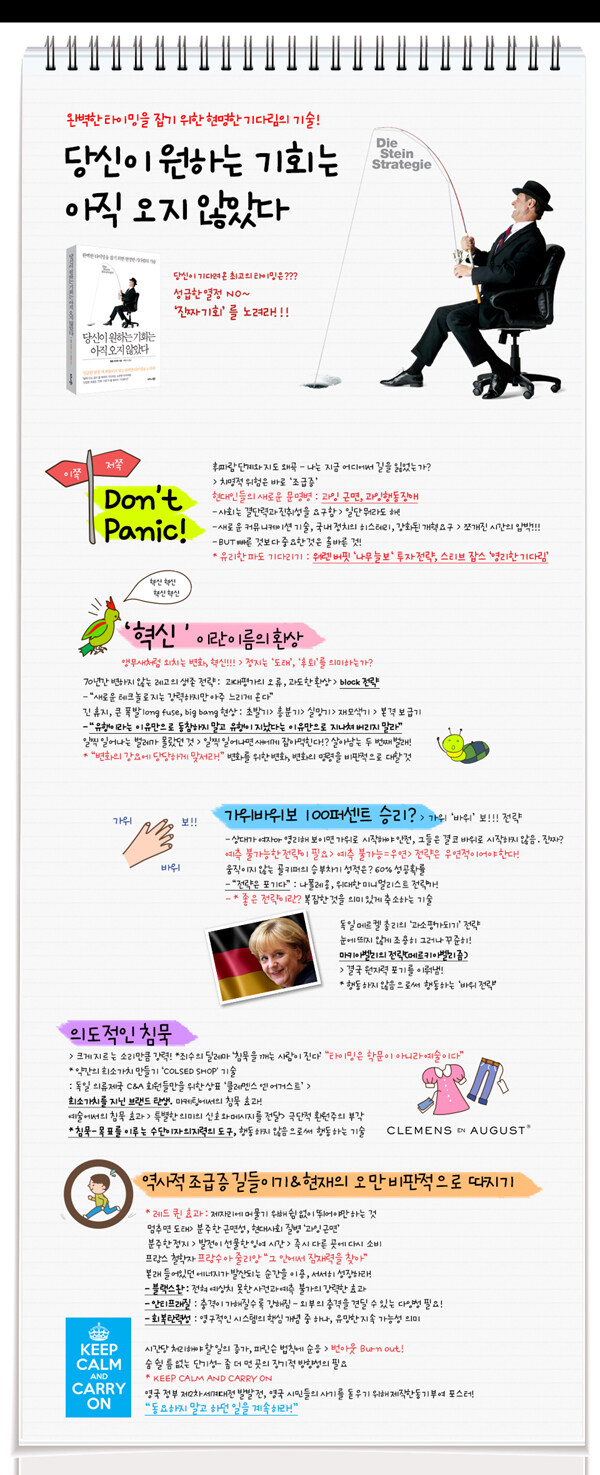 완벽한 타이밍을 잡기 위한 현명한 기다림의 기술!
당신이 원하는 기회는
아직 오지 않았다
Die
Stein
Strategie
당신이 기다려온 최고의 타이밍은???
성급한 열정 NO~
'진짜 기회'를 노려라!!!
당신이 원하는 기회는
아직 오지 않았다
이쪽
저쪽
Don't
Panic!
휘파람 단계와 지도 왜곡 - 나는 지금 어디에서 길을 잃었는가?
> 치명적 위험은 바로 '조급증'
현대인들의 새로운 문명병 : 과잉 근면, 과잉행동장애
- 사회는 결단력과 진취성을 요구함 > 일단 뭐라도 해!
- 새로운 커뮤니케이션 기술, 국내 정치의 히스테리, 강화된 개혁요구 > 쪼개진 시간의 압박!!!
- BUT 빠른 것보다 중요한 것은 올바른 것!
* 유리한 파도 기다리기 : 워렌버핏 '나무늘보' 투자전략, 스티브 잡스 '영리한 기다림'
혁신 혁신
혁신 혁신
'혁신' 이란 이름의 환상
앵무새처럼 외치는 변화, 혁신!!! > 정지는 '도태', '후퇴'를 의미하는가?
70년간 변하지 않는 레고의 생존 전략 : 과대평가의 오류, 과도한 환상 > block 전략
- "새로운 테크놀로지는 강력하지만 아주 느리게 온다"
긴 휴지, 큰 폭발 long fuse, big bang 현상 : 초발기 > 흥분기 > 실망기 > 재모색기 > 본격 보급기
- "유행이라는 이유만으로 동참하지 말고 유행이 지났다는 이유만으로 지나쳐 버리지 말라"
일찍 일어나는 벌레가 몰랐던 것 > 일찍 일어나면 새에게 잡아먹힌다!? 살아남는 두 번째 벌레!
* "변화의 강요에 당당하게 맞서라!" 변화를 위한 변화, 변화의 명령을 비판적으로 대할 것
가위
보!!
바위
가위바위보 100퍼센트 승리? > 가위 '바위' 보!!! 전략
- 상대가 여자or 영리해 보이면 가위로 시작해야 안전, 그들은 결코 바위로 시작하지 않음. 진짜?
예측 불가능한 전략이 필요 > 예측 불가능=우연 > 전략은 우연적이어야 한다!
움직이지 않는 골키퍼의 승부차기 성적은? 60% 성공확률
- "전략은 포기다" : 나폴레옹, 위대한 미니멀리스트 전략가!
- * 좋은 전략이란? 복잡한 것을 의미 있게 축소하는 기술
독일 메르켈 총리의 '과소평가되기' 전략
눈에 띄지 않게 조용히 그러나 꾸준히!
마키아벨리의 전략(메르키아벨리즘)
> 결국 원자력 포기를 이뤄냄!
* 행동하지 않음으로써 행동하는 '바위 전략'
의도적인 침묵
> 크게 지르는 소리만큼 강력! *죄수의 딜레마 '침묵을 깨는 사람이 진다' "타이밍은 학문이 아니라 예술이다"
* 약간의 희소가치 만들기 'COLSED SHOP' 기술
: 독일 의류제국 C&A 회원들만을 위한 상표 '클레멘스 엔 어거스트' >
희소가치를 지닌 브랜드 탄생, 마케팅에서의 침묵 효과!
예술에서의 침묵 효과 > 특별한 의미의 신호와 메시지를 전달 > 극단적 환원주의 부각
* 침묵 - 목표를 이루는 수단이자 의지력의 도구, 행동하지 않음으로써 행동하는 기술
CLEMENS EN AUGUST®
역사적 조급증 길들이기 & 현재의 오만 비판적으로 따지기
* 레드 퀸 효과 : 제자리에 머물기 위해 쉼 없이 뛰어야만 하는 것
멈추면 도태 > 분주한 근면성, 현대사회 질병 '과잉 근면'
분주한 정지 > 발전이 선물한 잉여 시간 > 즉시 다른 곳에 다시 소비
프랑스 철학자 프랑수아 줄리앙 "그 안에서 잠재력을 찾아"
본래 들어있던 에너지가 발산되는 순간을 이용, 서서히 성장하라!
- 블랙스완 : 전혀 예상치 못한 사건과 예측 불가의 강력한 효과
- 안티프래질 : 충격이 가해질수록 강해짐 - 외부의 충격을 견딜 수 있는 다양성 필요!
- 회복탄력성 : 영구적인 시스템의 핵심 개념 중 하나, 유망한 지속 가능성 의미
KEEP
CALM
AND
CARRY
ON
시간당 처리해야 할 일의 증가, 파킨슨 법칙에 순응 > 번아웃 Burn out!
숨 쉴 틈 없는 단기성 - 좀 더 먼 곳의 장기적 방향성의 필요
* KEEP CALM AND CARRY ON
영국 정부 제2차 세계대전 발발 전, 영국 시민들의 사기를 돋우기 위해 제작한 동기부여 포스터!
"동요하지 말고 하던 일을 계속하라!"